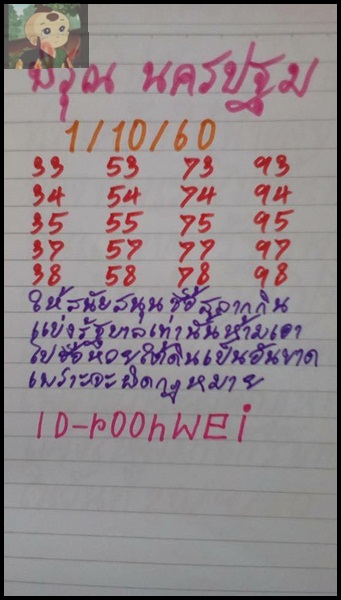 พิรุณ นครปฐม
1/10/60
33 53 73 93
34 54 74 94
35 55 75 95
37 57 77 97
38 58 78 98
ให้สนับสนุนซื้อสลากกิน
แบ่งรัฐบาลเท่านั้นห้ามเอา
ไปซื้อหวยใต้ดินเป็นอันขาด
เพราะจะผิดกฎหมาย
ID-rOOhWEi